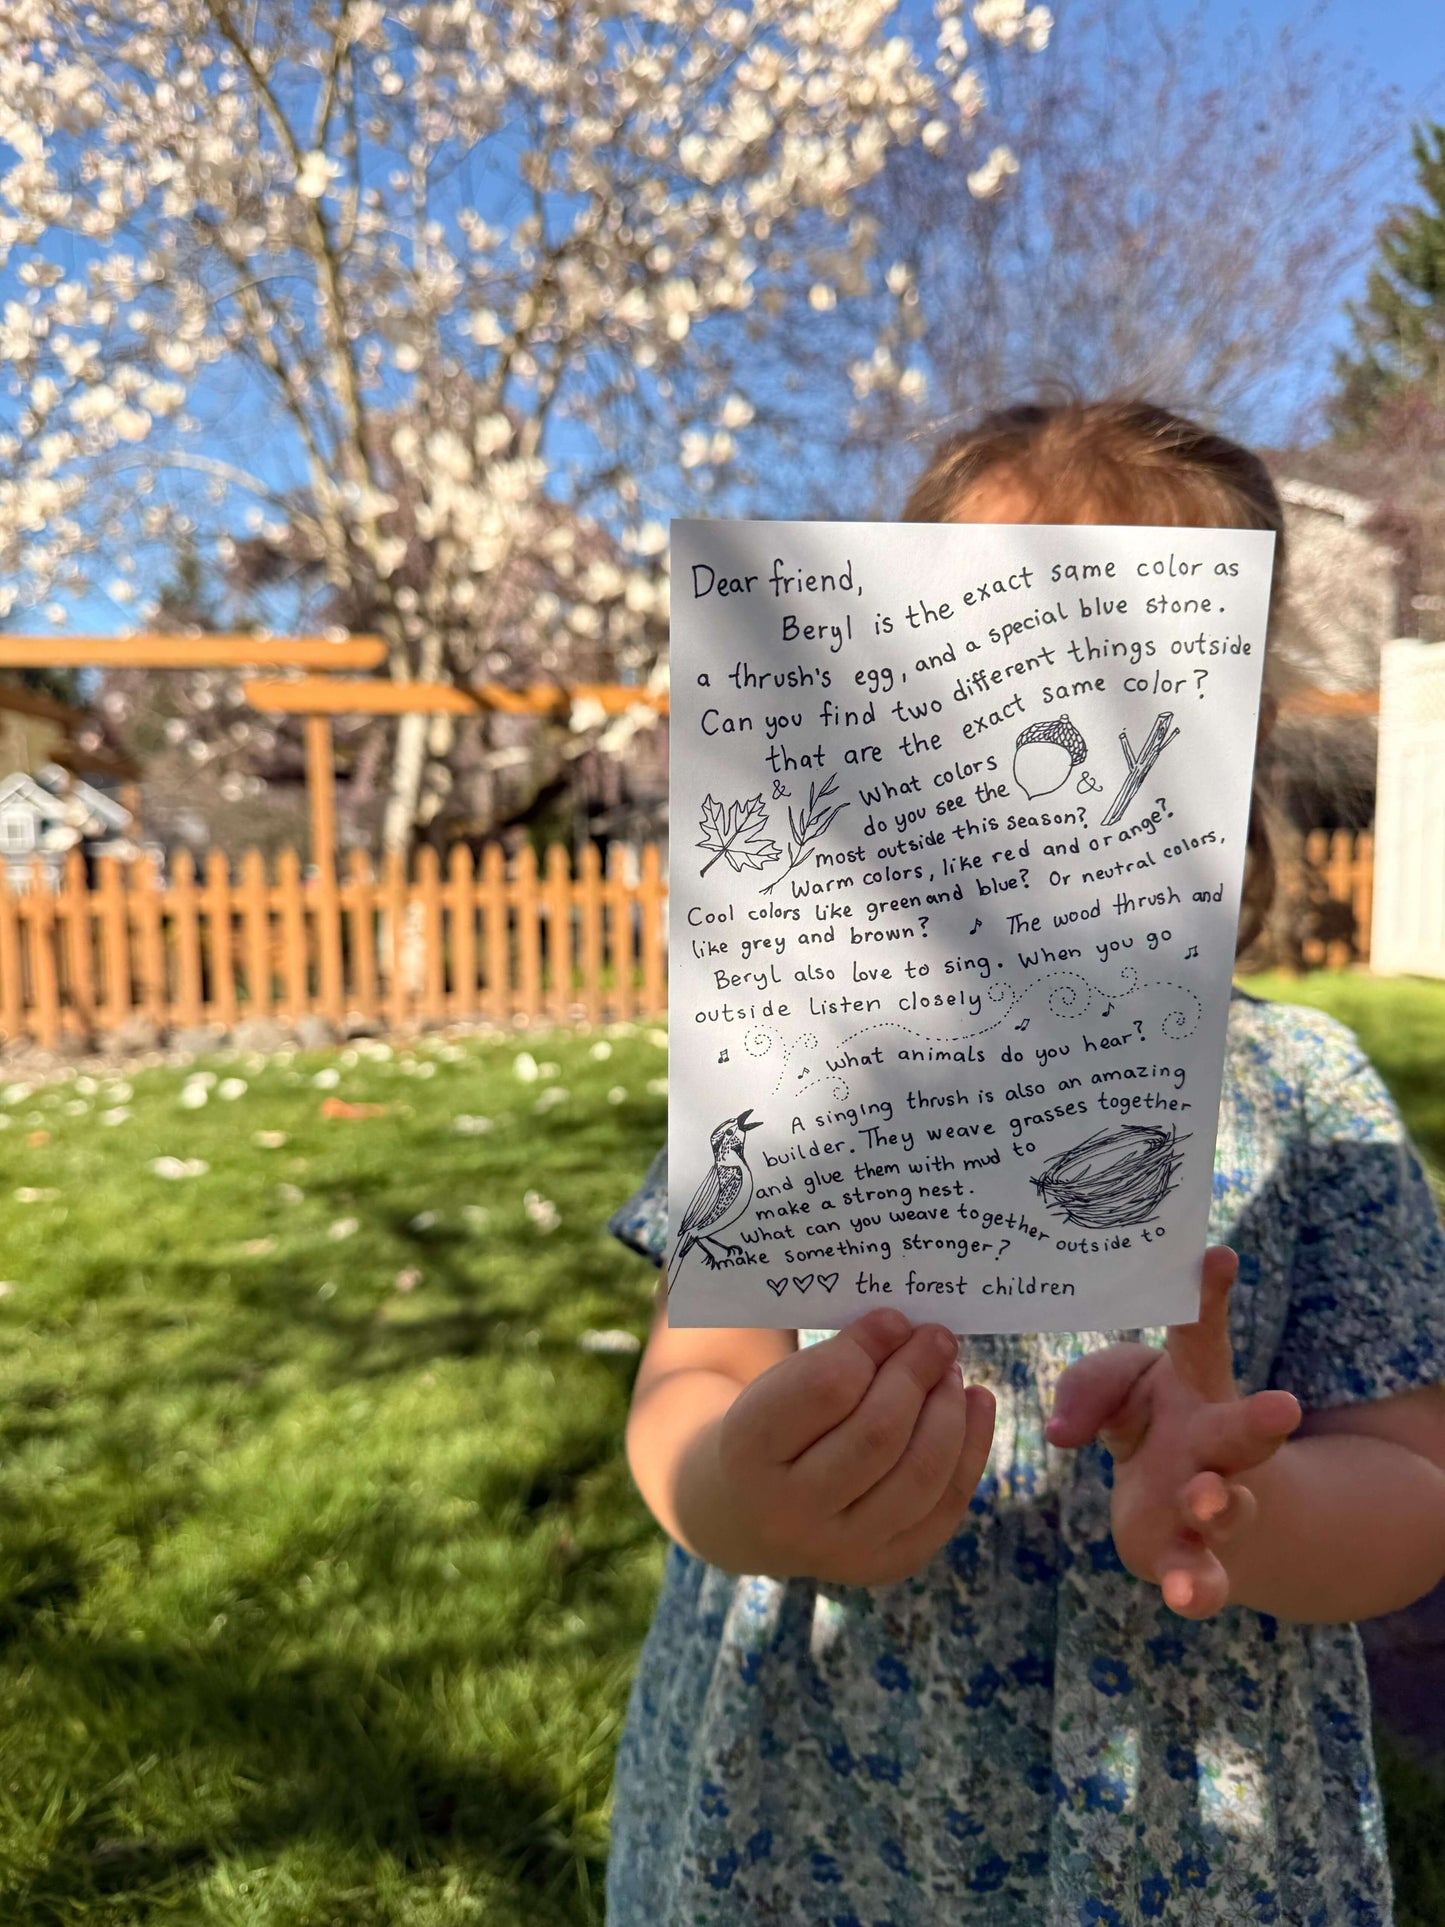 Dear friend,
Beryl is the exact same color as
a thrush's egg, and a special blue stone.
Can you find two different things outside
that are the exact same color?
&
What colors
&
do you see the
most outside this season?
Warm colors, like red and orange?
Cool colors like green and blue? Or neutral colors,
like grey and brown?
The wood thrush and
Beryl also love to sing. When you go
outside listen closely
what animals do you hear?
A singing thrush is also an amazing
builder. They weave grasses together
and glue them with mud to
make a strong nest.
What can you weave together outside to
make something stronger?
♡♡♡ the forest children